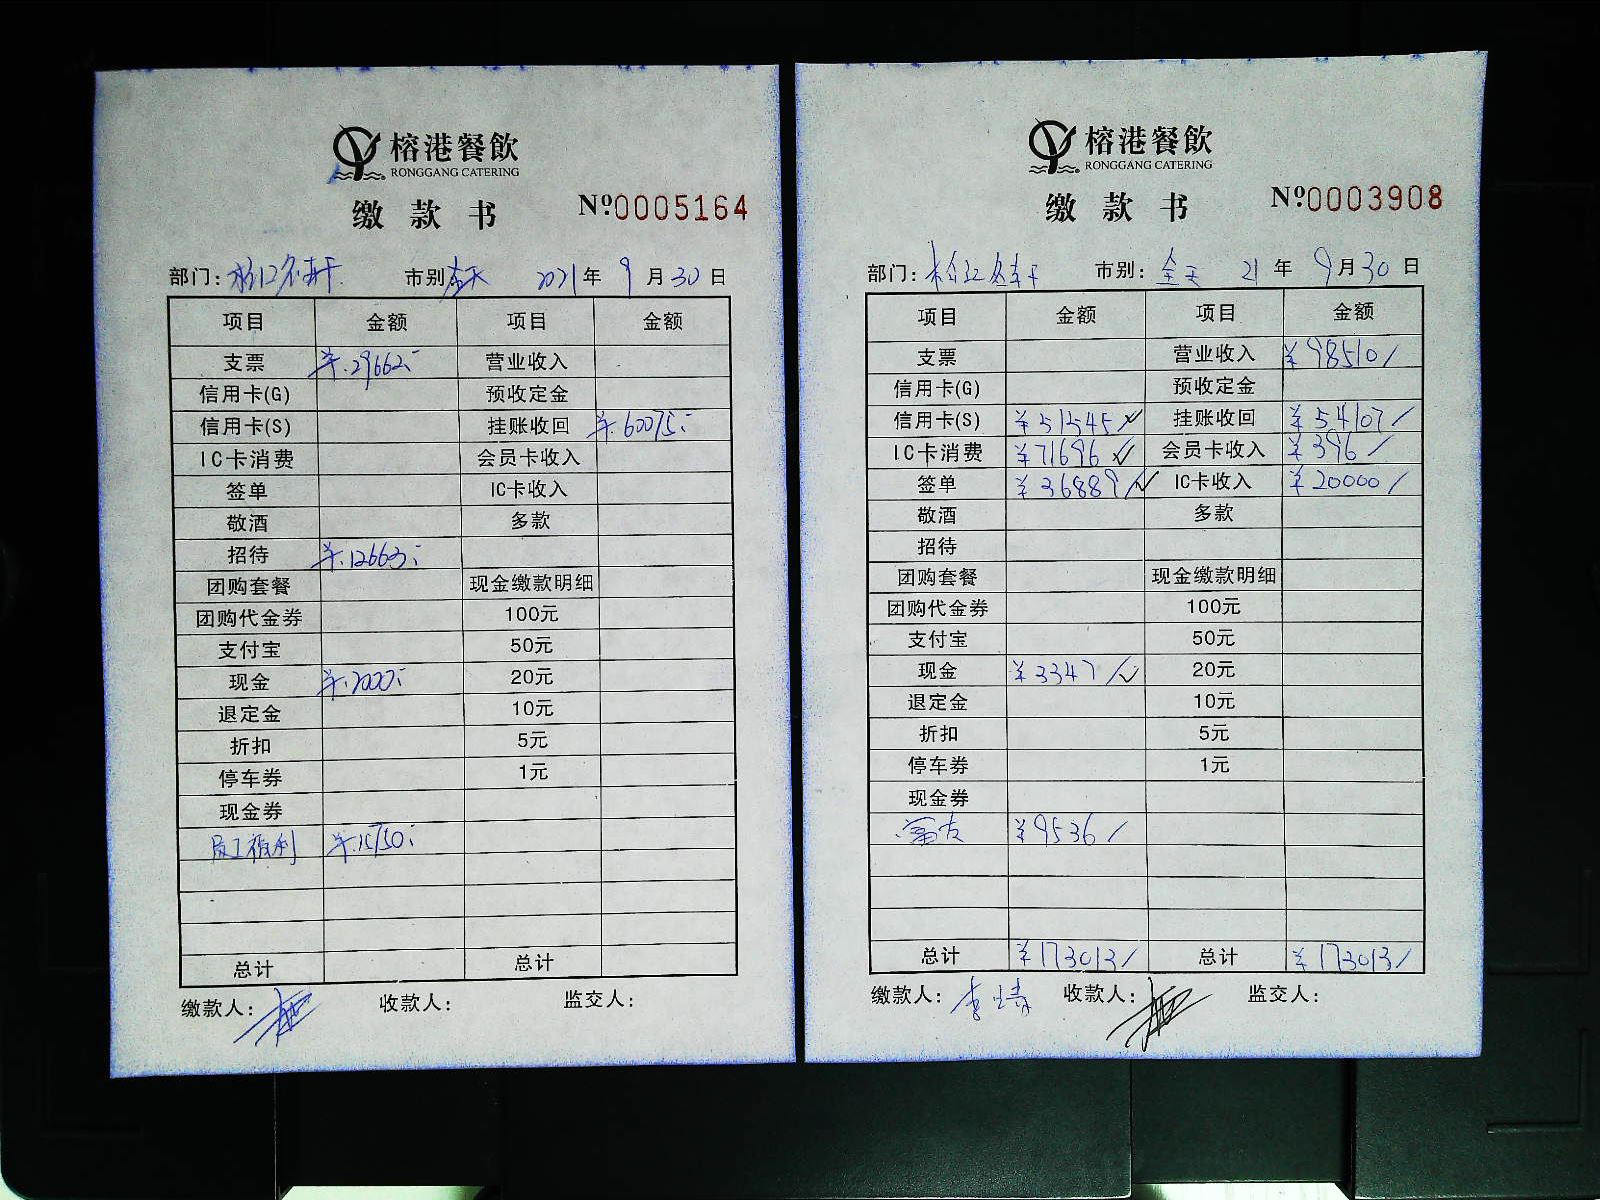 榕港餐飲
RONGGANG CATERING
缴款书
Nº0005164
部门: 市别 全天 2021年9月30日
项目 金额 项目 金额
支票 ¥.29662.- 营业收入
信用卡(G) 预收定金
信用卡(S) 挂账收回 ¥.60075.-
IC卡消费 会员卡收入
签单 IC卡收入
敬酒 多款
招待 ¥.12663.-
团购套餐 现金缴款明细
团购代金券 100元
支付宝 50元
现金 ¥.2000.- 20元
退定金 10元
折扣 5元
停车券 1元
现金券
员工福利 ¥.15750.-
总计 总计
缴款人: 收款人: 监交人:
榕港餐飲
RONGGANG CATERING
缴款书
Nº0003908
部门: 市别: 全天 21年9月30日
项目 金额 项目 金额
支票 营业收入 ¥98510/
信用卡(G) 预收定金
信用卡(S) ¥51545✓ 挂账收回 ¥54107/
IC卡消费 ¥71696✓ 会员卡收入 ¥396/
签单 ¥36889/✓ IC卡收入 ¥20000/
敬酒 多款
招待
团购套餐 现金缴款明细
团购代金券 100元
支付宝 50元
现金 ¥3347/✓ 20元
退定金 10元
折扣 5元
停车券 1元
现金券
富友 ¥9536/
总计 ¥173013/ 总计 ¥173013/
缴款人: 收款人: 监交人: